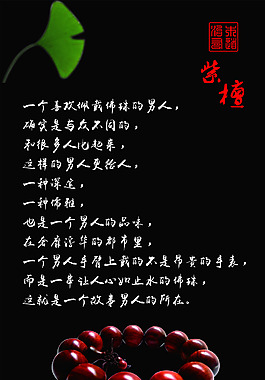 紫檀
一个喜欢佩戴佛珠的男人，
确实是与众不同的，
和很多人比起来，
这样的男人更给人，
一种深邃，
一种儒雅，
也是一个男人的品味，
在奢靡浮华的都市里，
一个男人手臂上戴的不是昂贵的手表，
而是一串让人心如止水的佛珠，
这就是一个故事男人的所在。